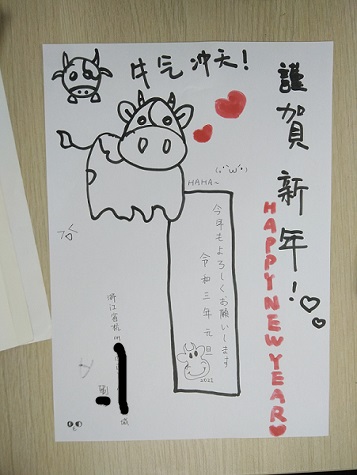 牛气冲天!
謹賀新年!
HAPPY NEW YEAR
HAHA~
(。・ω・。)
今年もよろしくお願いします
令和三年元旦
2021